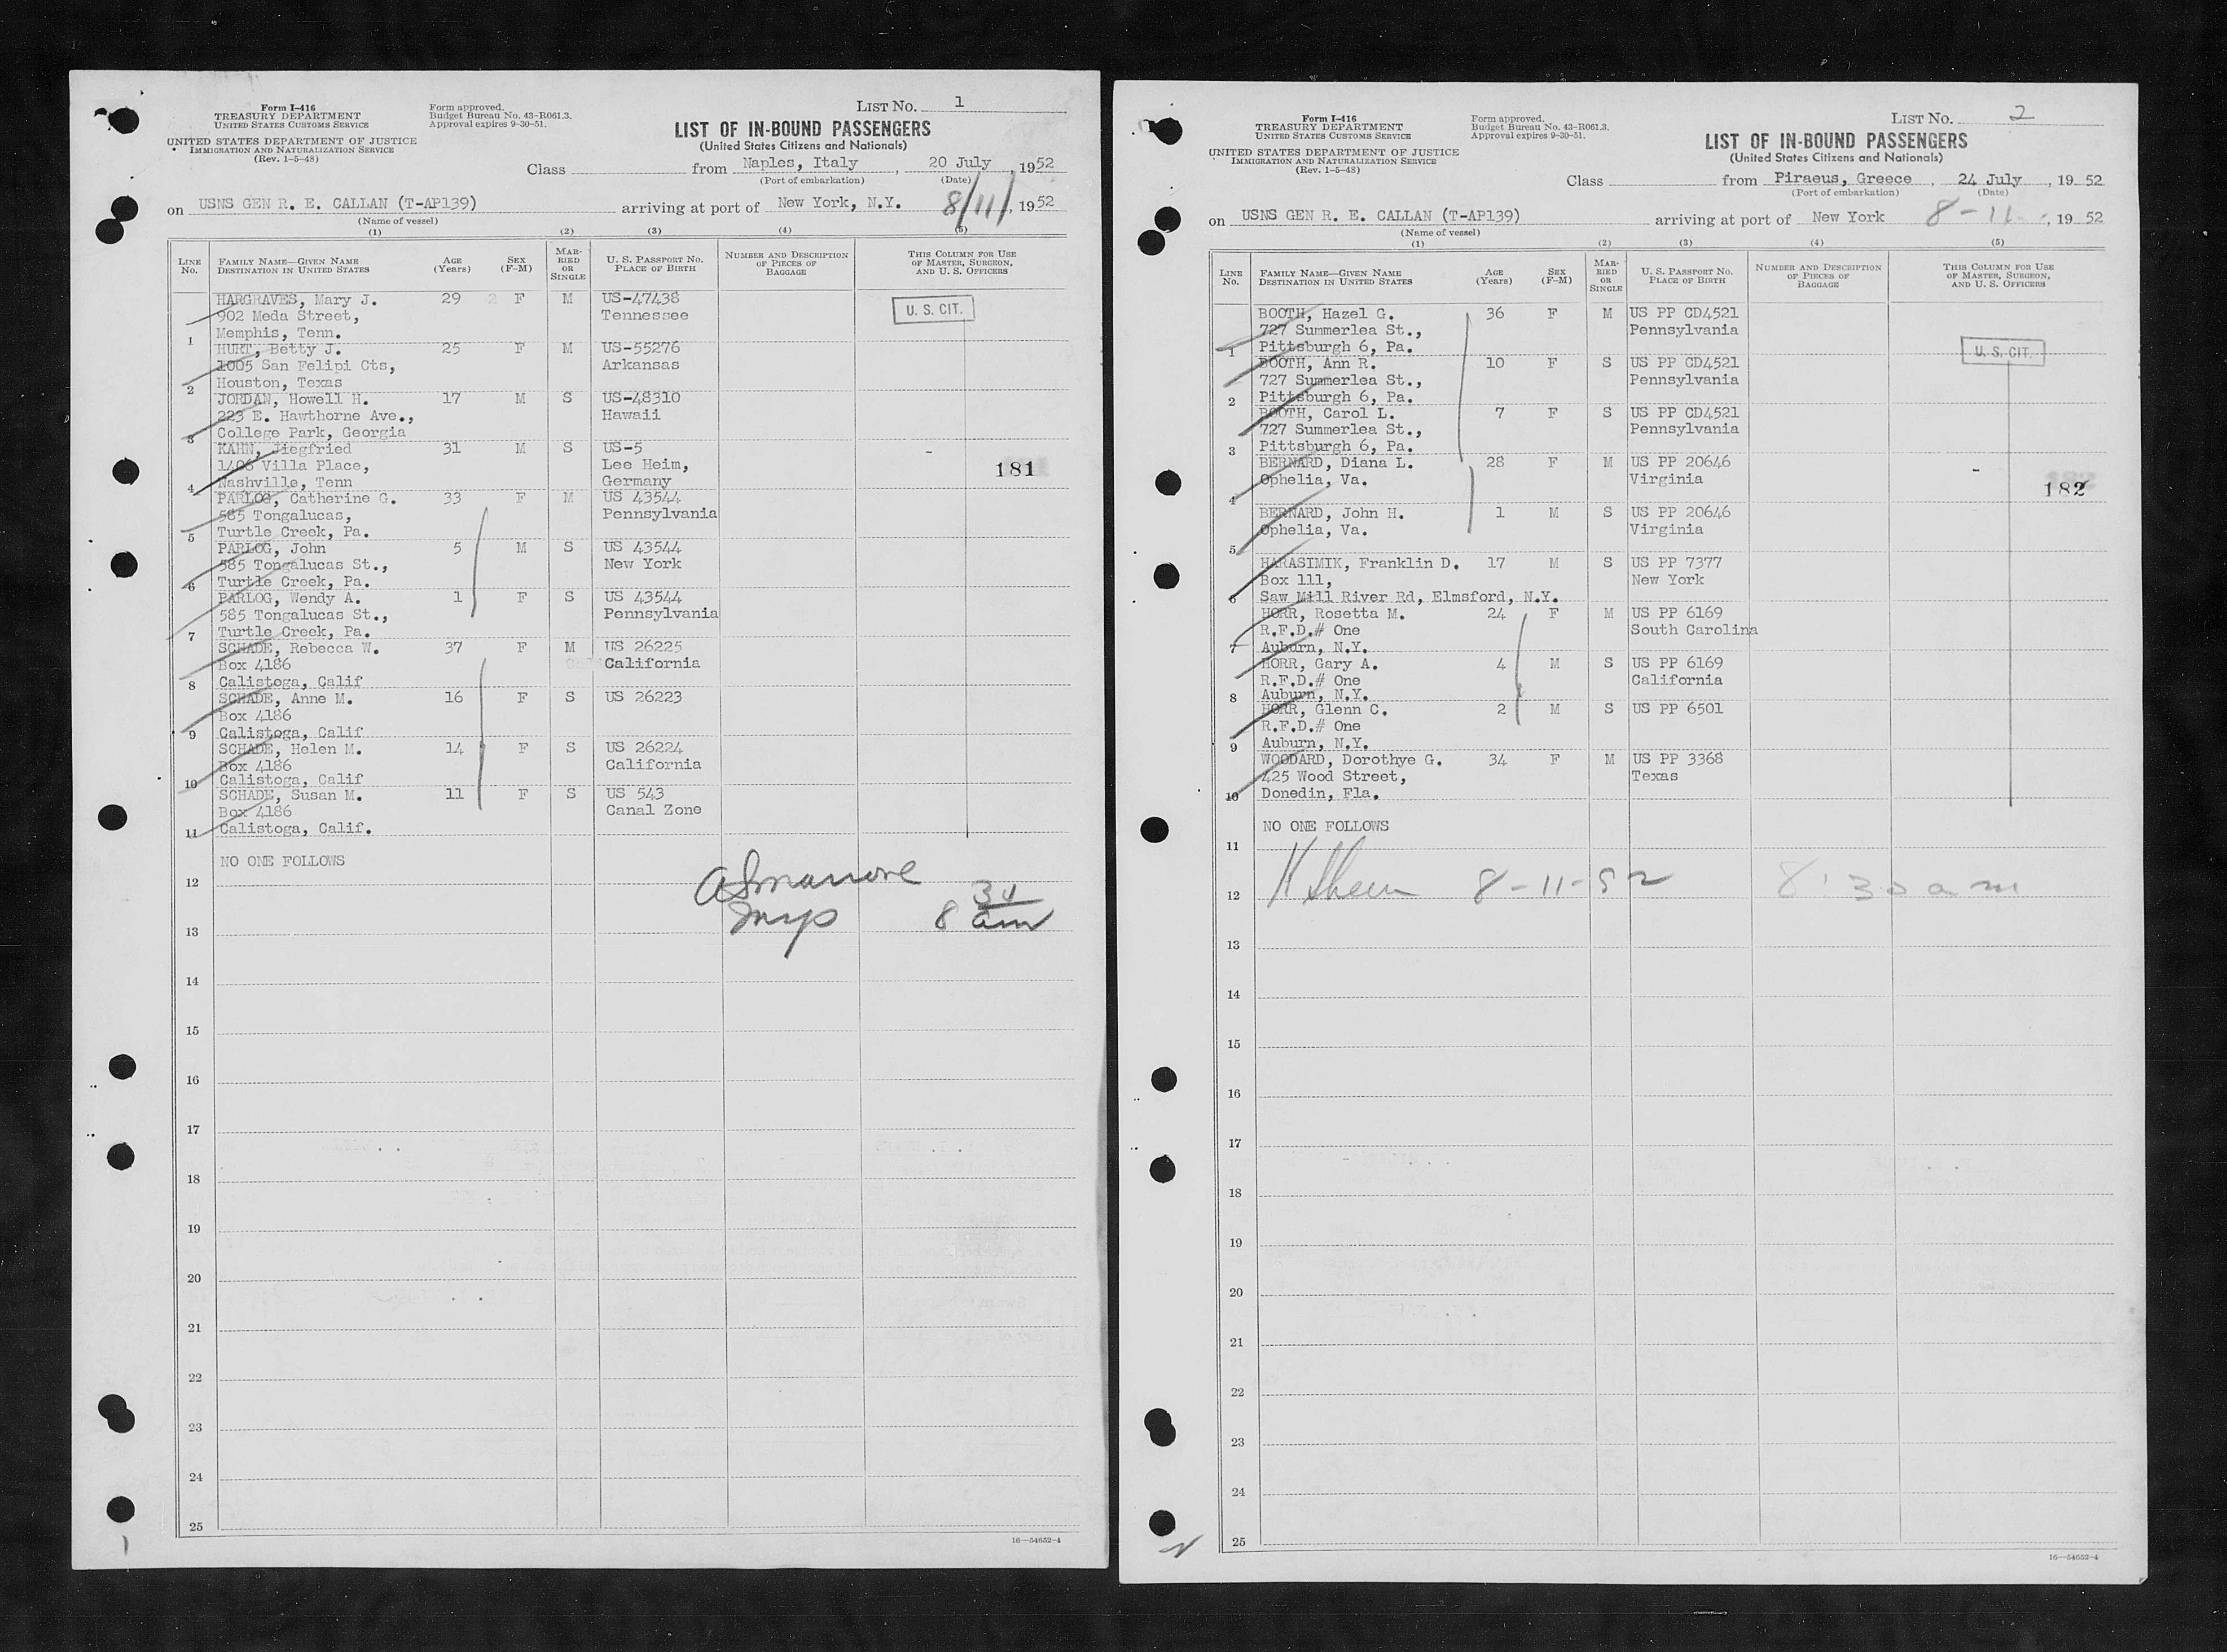 Form I-416
TREASURY DEPARTMENT
UNITED STATES CUSTOMS SERVICE
UNITED STATES DEPARTMENT OF JUSTICE
IMMIGRATION AND NATURALIZATION SERVICE
(Rev. 1-5-48)
Form approved.
Budget Bureau No. 43-R061.3.
Approval expires 9-30-51.
LIST NO. 1
LIST OF IN-BOUND PASSENGERS
(United States Citizens and Nationals)
Class from Naples, Italy, 20 July, 1952
(Port of embarkation) (Date)
on USNS GEN R. E. CALLAN (T-AP139) arriving at port of New York, N.Y. 8/11/, 1952
(Name of vessel)
(1) (2) (3) (4) (5)
LINE No. FAMILY NAME—GIVEN NAME DESTINATION IN UNITED STATES AGE (Years) SEX (F-M) MARRIED OR SINGLE U. S. PASSPORT NO. PLACE OF BIRTH NUMBER AND DESCRIPTION OF PIECES OF BAGGAGE THIS COLUMN FOR USE OF MASTER, SURGEON, AND U. S. OFFICERS
HARGRAVES, Mary J. 29 F M US-47438
902 Meda Street, Tennessee U. S. CIT.
1 Memphis, Tenn.
HURT, Betty J. 25 F M US-55276
1005 San Felipi Cts, Arkansas
2 Houston, Texas
JORDAN, Howell H. 17 M S US-48310
223 E. Hawthorne Ave., Hawaii
3 College Park, Georgia
KAHN, Jiegfried 31 M S US-5
1406 Villa Place, Lee Heim, 181
4 Nashville, Tenn Germany
PARLOG, Catherine G. 33 F M US 43544
585 Tongalucas, Pennsylvania
5 Turtle Creek, Pa.
PARLOG, John 5 M S US 43544
585 Tongalucas St., New York
6 Turtle Creek, Pa.
PARLOG, Wendy A. 1 F S US 43544
585 Tongalucas St., Pennsylvania
7 Turtle Creek, Pa.
SCHADE, Rebecca W. 37 F M US 26225
Box 4186 California
8 Calistoga, Calif
SCHADE, Anne M. 16 F S US 26223
Box 4186
9 Calistoga, Calif
SCHADE, Helen M. 14 F S US 26224
Box 4186 California
10 Calistoga, Calif
SCHADE, Susan M. 11 F S US 543
Box 4186 Canal Zone
11 Calistoga, Calif.
NO ONE FOLLOWS
12
8 30 am
13
14
15
16
17
18
19
20
21
22
23
24
25
16—54652-4
Form I-416
TREASURY DEPARTMENT
UNITED STATES CUSTOMS SERVICE
UNITED STATES DEPARTMENT OF JUSTICE
IMMIGRATION AND NATURALIZATION SERVICE
(Rev. 1-5-48)
Form approved.
Budget Bureau No. 43-R061.3.
Approval expires 9-30-51.
LIST NO. 2
LIST OF IN-BOUND PASSENGERS
(United States Citizens and Nationals)
Class from Piraeus, Greece, 24 July, 1952
(Port of embarkation) (Date)
on USNS GEN R. E. CALLAN (T-AP139) arriving at port of New York 8-11-, 1952
(Name of vessel)
(1) (2) (3) (4) (5)
LINE No. FAMILY NAME—GIVEN NAME DESTINATION IN UNITED STATES AGE (Years) SEX (F-M) MARRIED OR SINGLE U. S. PASSPORT NO. PLACE OF BIRTH NUMBER AND DESCRIPTION OF PIECES OF BAGGAGE THIS COLUMN FOR USE OF MASTER, SURGEON, AND U. S. OFFICERS
BOOTH, Hazel G. 36 F M US PP CD4521
727 Summerlea St., Pennsylvania
1 Pittsburgh 6, Pa. U. S. CIT.
BOOTH, Ann R. 10 F S US PP CD4521
727 Summerlea St., Pennsylvania
2 Pittsburgh 6, Pa.
BOOTH, Carol L. 7 F S US PP CD4521
727 Summerlea St., Pennsylvania
3 Pittsburgh 6, Pa.
BERNARD, Diana L. 28 F M US PP 20646
4 Ophelia, Va. Virginia 182
BERNARD, John H. 1 M S US PP 20646
Ophelia, Va. Virginia
5
HARASIMIK, Franklin D. 17 M S US PP 7377
Box 111, New York
6 Saw Mill River Rd, Elmsford, N.Y.
HORR, Rosetta M. 24 F M US PP 6169
R.F.D.# One South Carolina
7 Auburn, N.Y.
HORR, Gary A. 4 M S US PP 6169
R.F.D.# One California
8 Auburn, N.Y.
HORR, Glenn C. 2 M S US PP 6501
R.F.D.# One
9 Auburn, N.Y.
WOODARD, Dorothye G. 34 F M US PP 3368
425 Wood Street, Texas
10 Donedin, Fla.
NO ONE FOLLOWS
11
12 8-11-52 8:30 am
13
14
15
16
17
18
19
20
21
22
23
24
25
16—54652-4